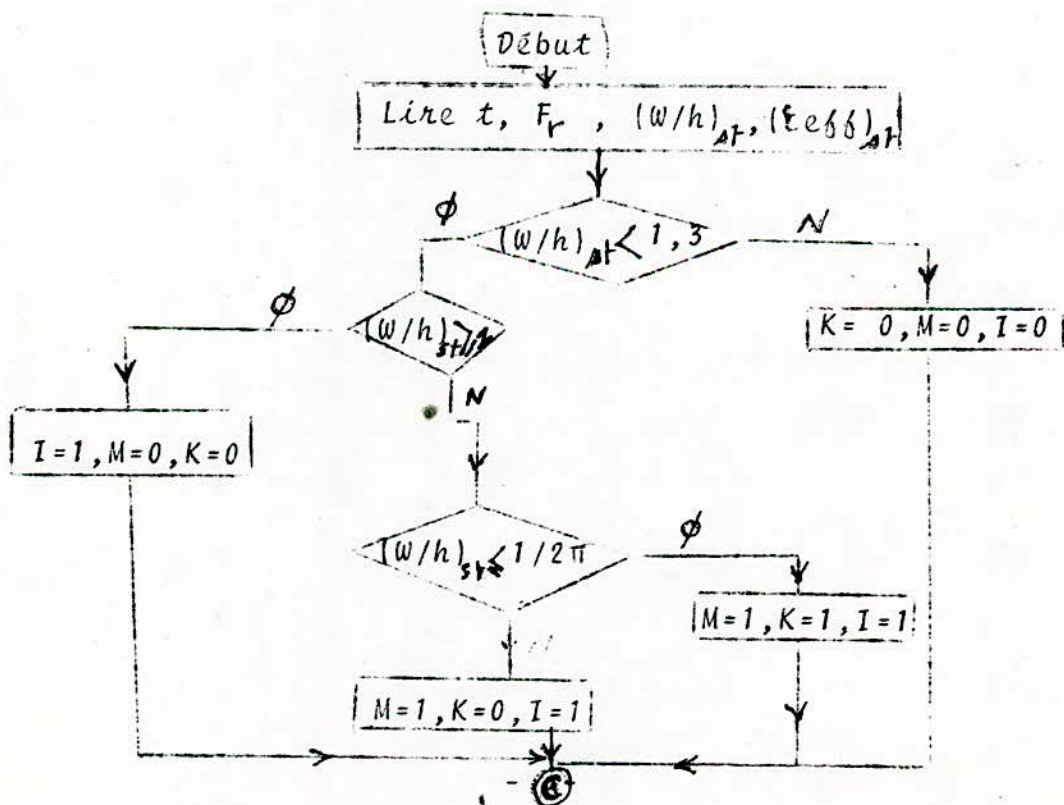 Début
Lire t, Fr, (W/h)st, (εeff)st
(W/h)st < 1,3
Φ
N
Φ
(W/h)st
K= 0, M=0, I=0
N
I=1, M=0, K=0
(W/h)st ≤ 1/2π
Φ
M=1, K=1, I=1
N
M=1, K=0, I=1
C